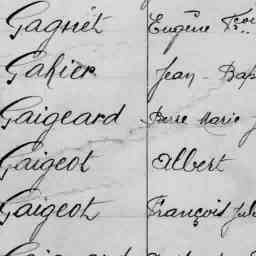 Gagnet Eugène Fçois
Gahier Jean - Bap
Gaigeard Pierre Marie J
Gaigeot Albert
Gaigeot François Jul